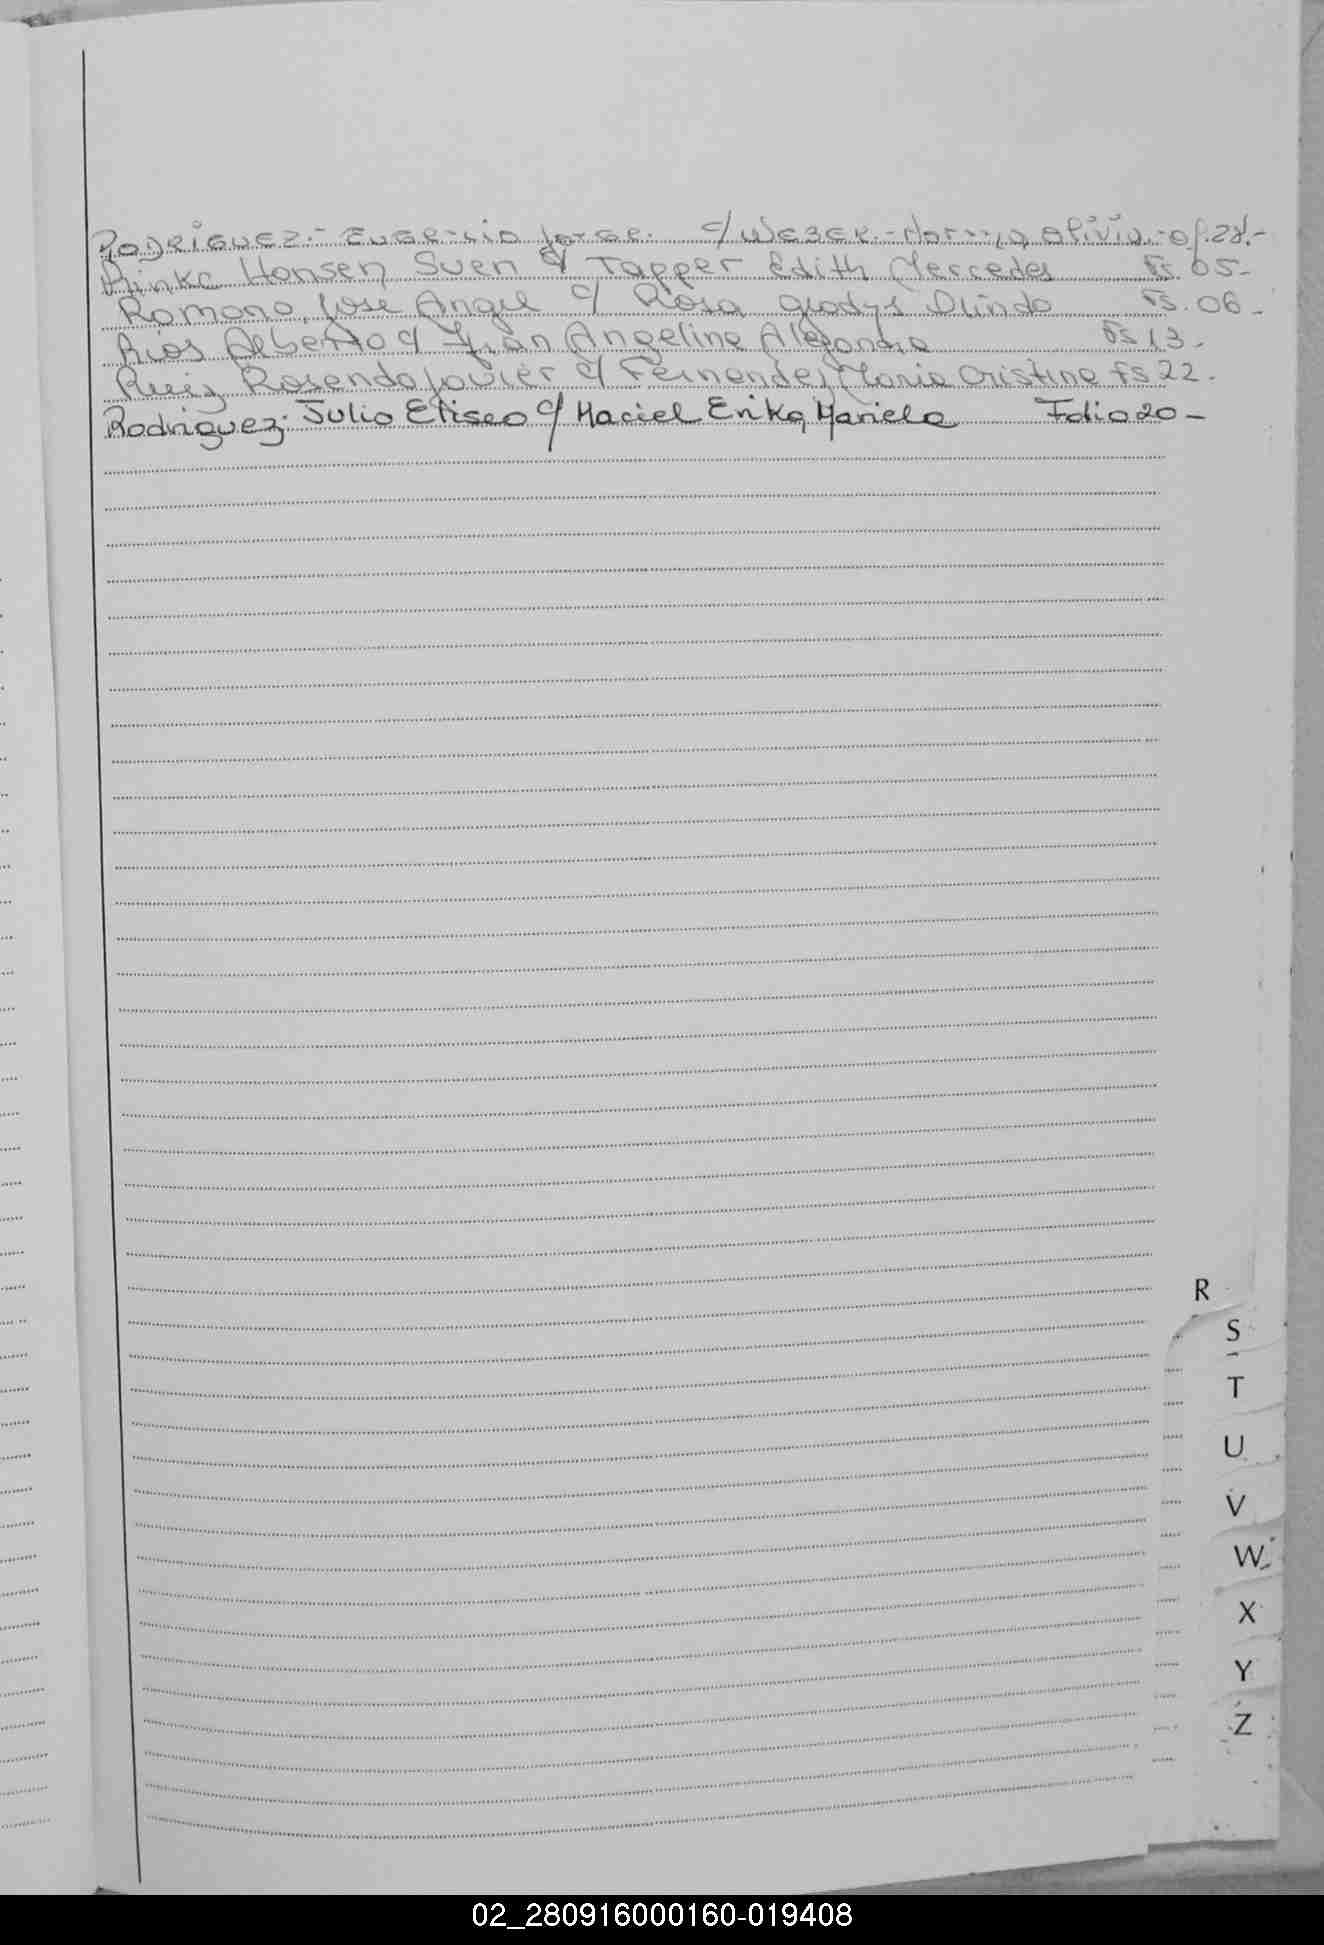 Rodriguez.- Eugenio Jorge. c/ Weber.- Norma Olivia.- of.28.-
Rinke Hansen Suen c/ Tapper Edith Mercedes Fs. 05-
Romano, Jose Angel c/ Rosa Gladys Olinda Fs. 06-
Rios Alberto c/ Angeline Alejandra Fs 13.
Ruiz Rosendo Javier c/ Fernandez Maria Cristina Fs 22.
Rodriguez Julio Eliseo c/ Maciel Erika Mariela Folio 20-
R
S
T
U
V
W
X
Y
Z
02_280916000160-019408